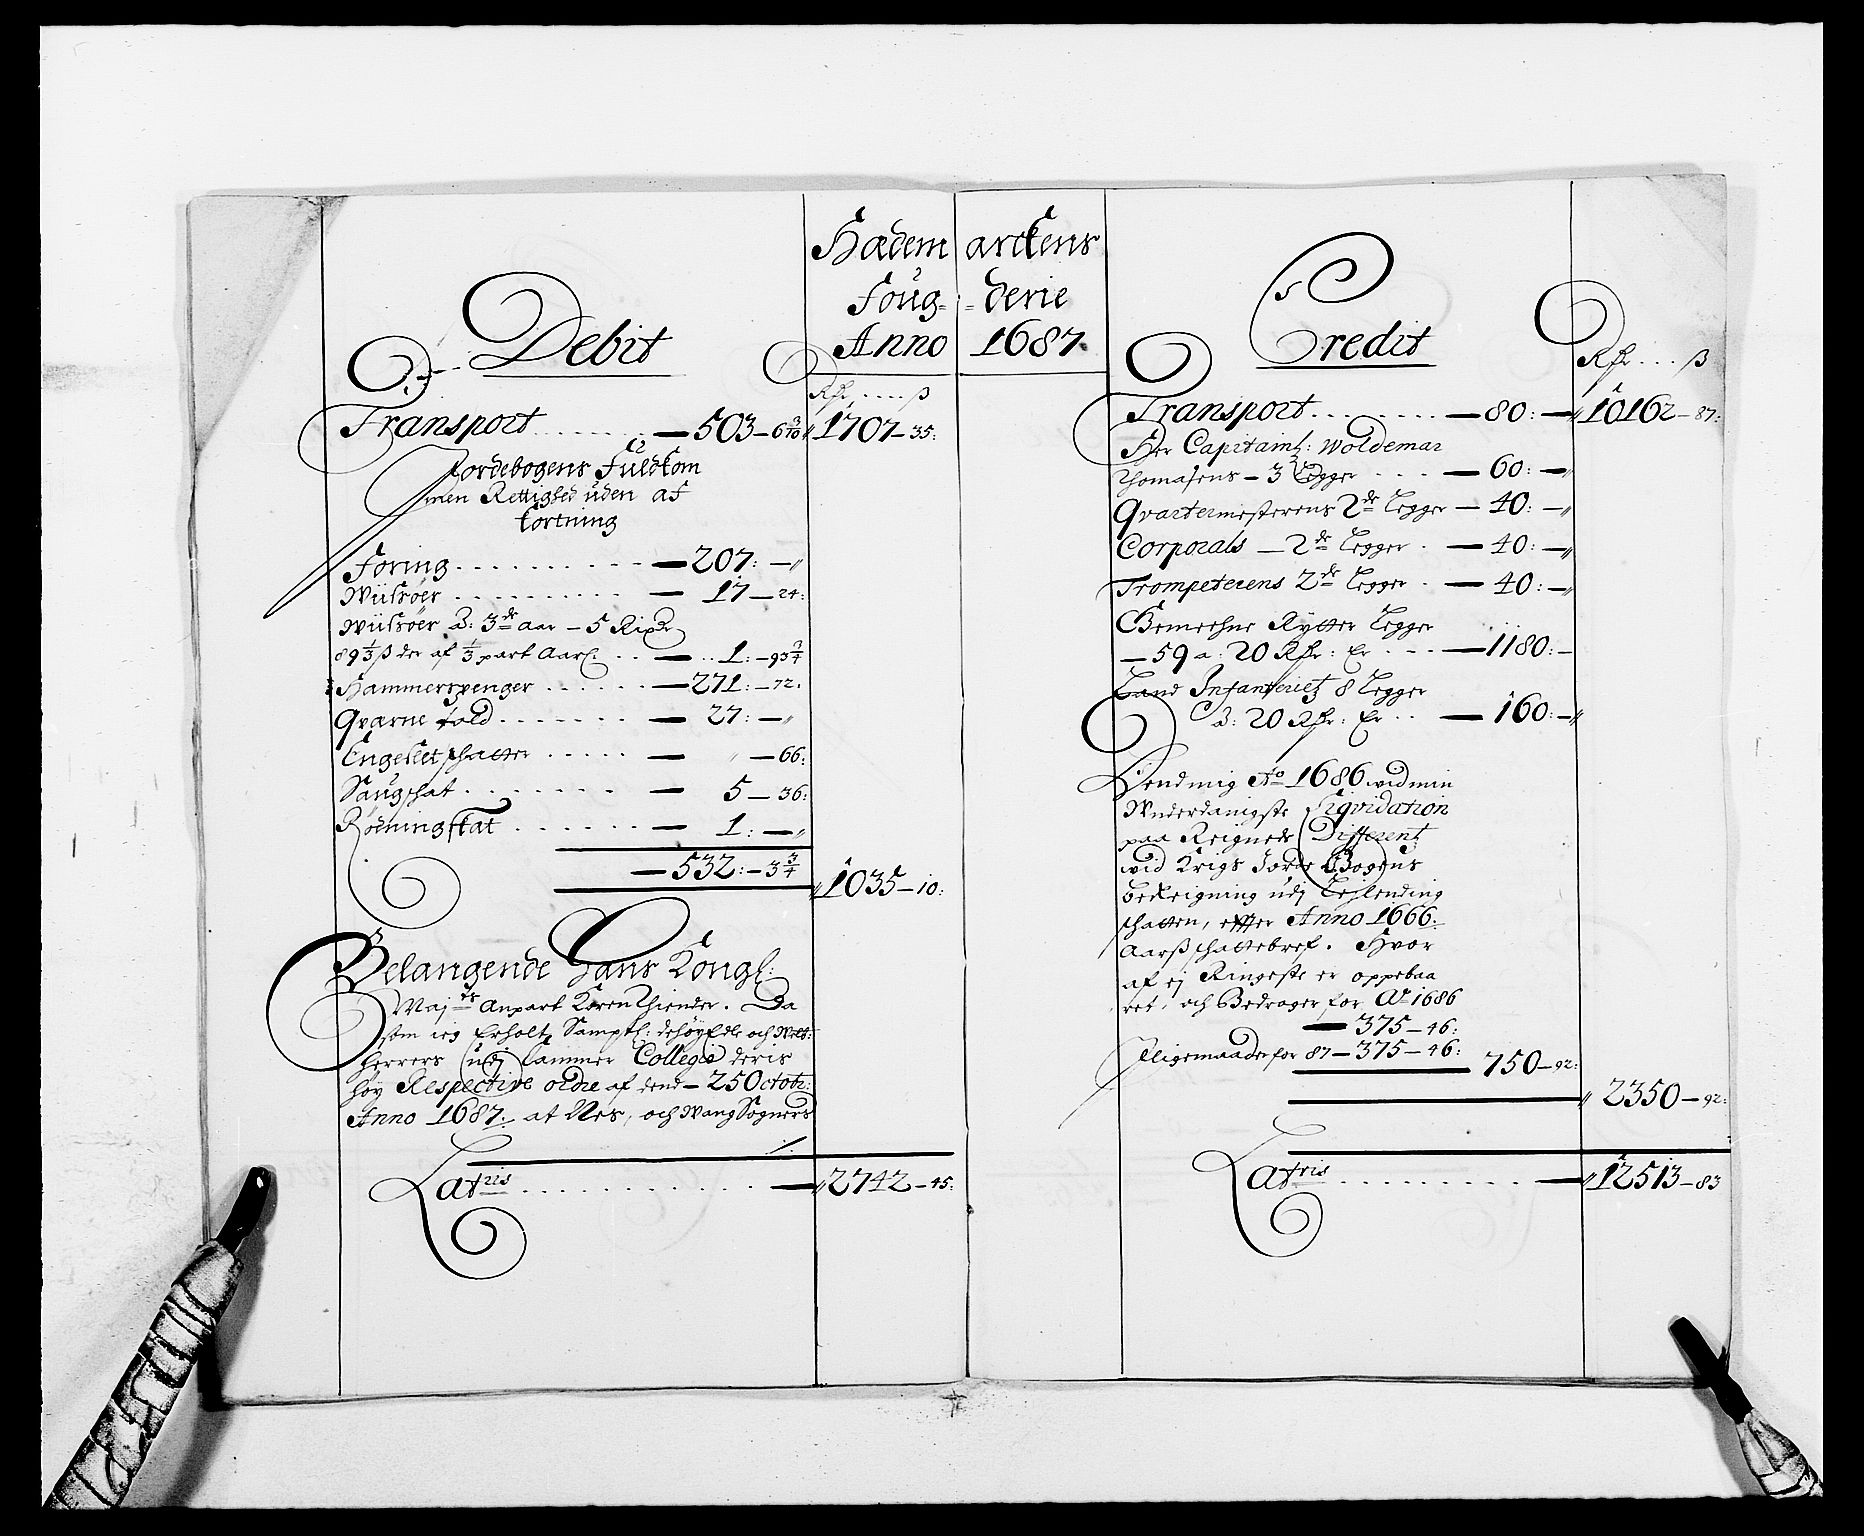 Hædem arckens
Foug= =derie
Anno 1687.
Debit
Rdr .... ß
Transport ........ — 503 – 6 3/10 „ 1707 – 35:
Jordebogens Fuldkom
men Rettighed uden af
kortning
Foring .......... — 207: – „
Wiisöer .......... — 17 – 24:
Wiisöer D: 3de aar – 5 Rixdr
89 1/3 ß der af 1/3 part Aarl: .. — .. 1: – 93 3/4
Hammerspenger ...... — 271: – 72:
Qvarne told ....... — 27: – „
Engeslet schatter ..... — „ – 66:
Saugschat ........ — 5 – 36:
Rödningskat ....... — 1: – „
— 532: – 3 3/4
„ 1035 – 10:
Belangende Hans Kongl:
Maj:ts Anpart Koren Thiender. Da
som ieg Erholt Samptl: dehöyEdle och Welb:
herrers udj Cammer Collegio deris
höy Respective ordre af dend – 25 Octobr:
Anno 1687. at Nes, och Wang Sogners
Latris ............ — „ 2742 – 45:
Credit
Rdr .... ß
Transport ........ — 80: – „ 10162 – 87:
Her Capitainl: Woldemar
Thomasens – 3 Legger ... — 60: – „
Qvartermesterens 2de Legger — 40: – „
Corporals – 2de Legger . — 40: – „
Trompeterens 2de Legger . — 40: – „
Gemeehne Rytter Legger
– 59 a: 20 Rdr: Er .... — 1180: –
Land Infanteriet 8 Legger
D: 20 Rdr: Er .. — 160: – „
Dend mig Ao 1686 wid min
Underdanigste Liqvidation
paa Reignede Different
wid Krigs Jorde Bogens
bereigning udj Leylending
schatten, effter Anno 1666.
Aarß schattebref. Hvor
af ej Ringeste er oppebaa
ret, och Bedrager for Ao 1686
— 375 – 46:
Jligemaade for 87 – 375 – 46: 750 – 92:
„ 2350 – 92:
Latris .......... — „ 12513 – 83